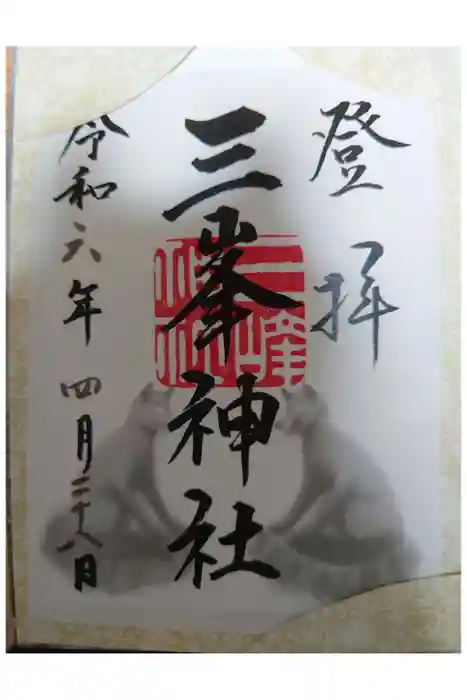 登拝
三峯神社
令和六年四月二十八日
三峰神社